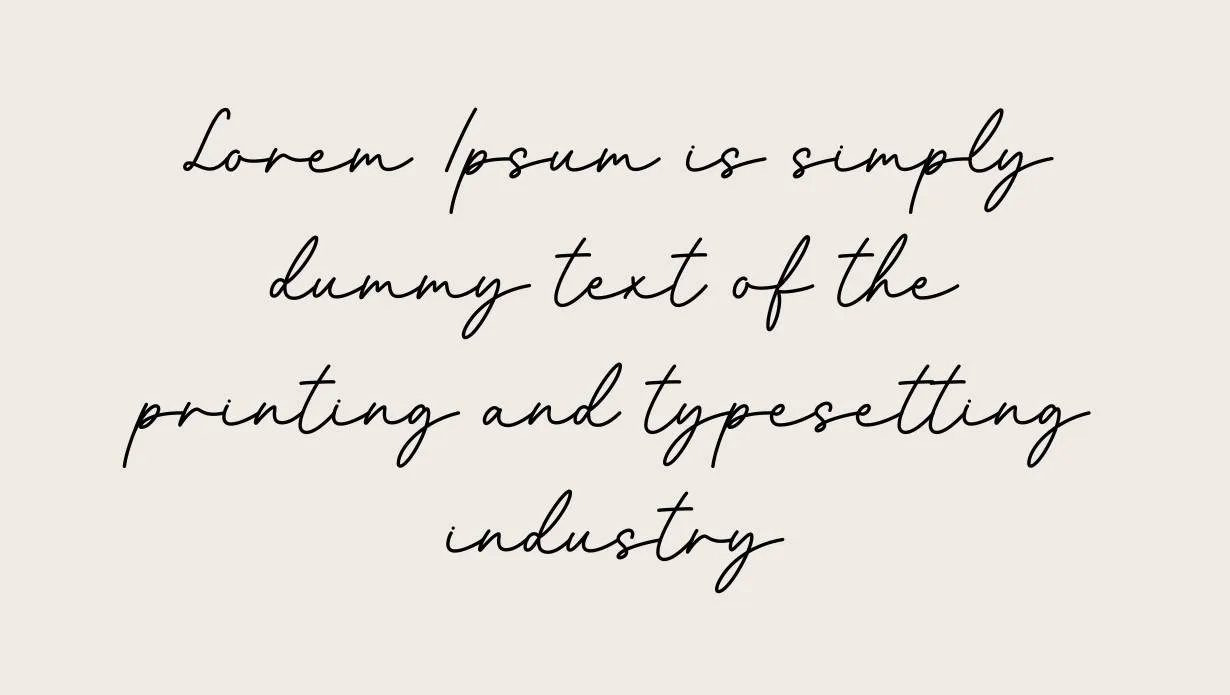 Lorem Ipsum is simply
dummy text of the
printing and typesetting
industry